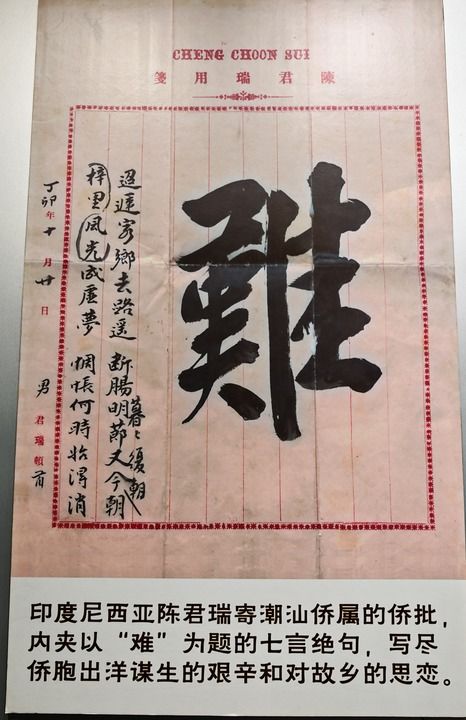 CHENG CHOON SUI
陳君瑞用箋
難
迢遞家鄉去路遥 断腸明節又今朝
暮〻復朝
梓里風光成虛夢 惆悵何時始得消
丁卯年十月廿日 男 君瑞頓首
印度尼西亚陈君瑞寄潮汕侨属的侨批，
内夹以“难”为题的七言绝句，写尽
侨胞出洋谋生的艰辛和对故乡的思恋。